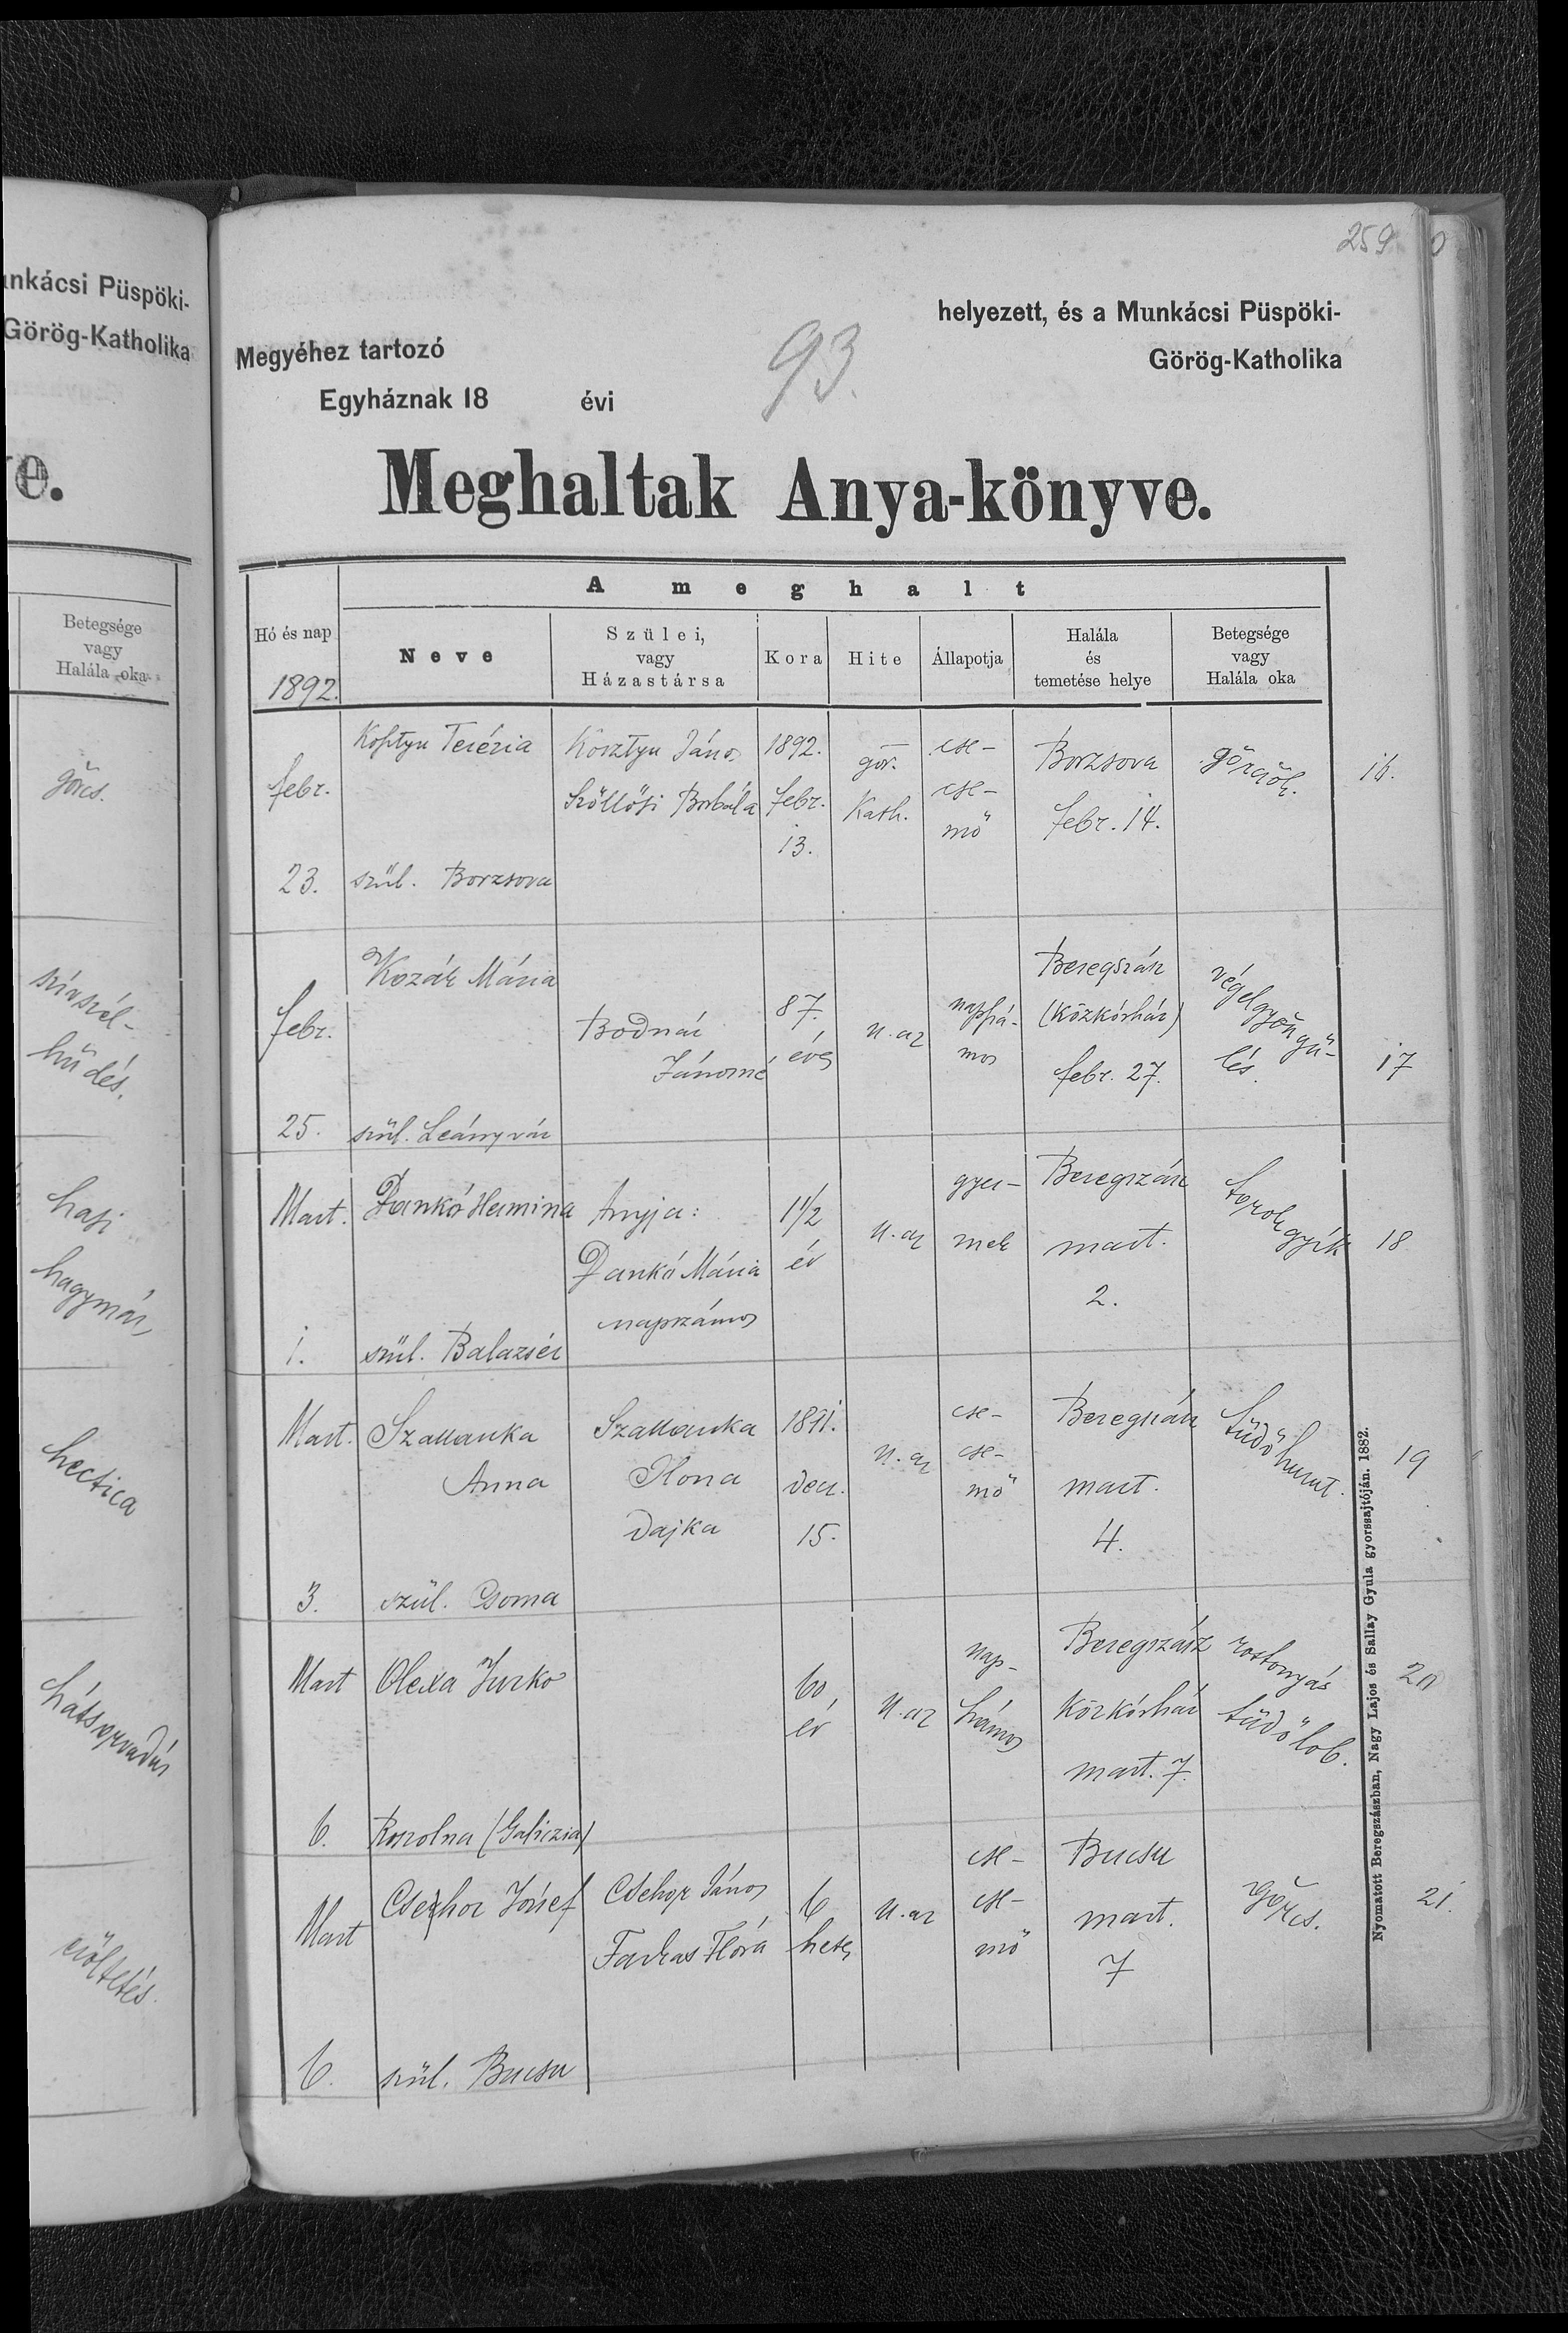 unkácsi Püspöki-
Görög-Katholika
e.
Betegsége
vagy
Halála oka
görcs.
szívszél-
hűdés.
hasi
hagymáz
hectica
hátsorvadás
csöltetés.
259
helyezett, és a Munkácsi Püspöki-
Megyéhez tartozó
Görög-Katholika
Egyháznak 18 évi
93.
Meghaltak Anya-könyve.
A meghalt
Hó és nap
1892.
Neve
Szülei,
vagy
Házastársa
Kora
Hite
Állapotja
Halála
és
temetése helye
Betegsége
vagy
Halála oka
febr.
23.
Kosztyu Terézia
szül. Borzsova
Kosztyu János
Szőllősi Borbála
1892.
febr.
13.
gör.
Kath.
cse-
cse-
mő
Borzsova
febr. 14.
görcsök.
16.
febr.
25.
Kozák Mária
szül. Leányvár
Bodnár
Jánosné
87.
éves
u. az
napszá-
mos
Beregszász
(Közkórház)
febr. 27.
végelgyöngü-
lés.
17
Mart.
1.
Dankó Hermina
szül. Balazsér
Anyja:
Dankó Mária
napszámos
1 1/2
év
u. az
gyer-
mek
Beregszász
mart.
2.
torokgyík
18
Mart.
3.
Szallanka
Anna
szül. Csoma
Szallanka
Ilona
dajka
1891.
dec.
15.
u. az
cse-
cse-
mő
Beregszász
mart.
4.
tüdőhurut.
19
Mart
6.
Olexa Jurko
Roszolna (Galiczia)
60
év
u. az
nap-
számos
Beregszász
Közkórház
mart. 7.
rostonyás
tüdőlob.
20
Mart
6.
Csehor József
szül. Bucsu
Csehor János
Farkas Flóra
6
hetes
u. az
cse-
cse-
mő
Bucsu
mart.
7
görcs.
21.
Nyomatott Beregszászban, Nagy Lajos és Sallay Gyula gyorssajtóján. 1882.